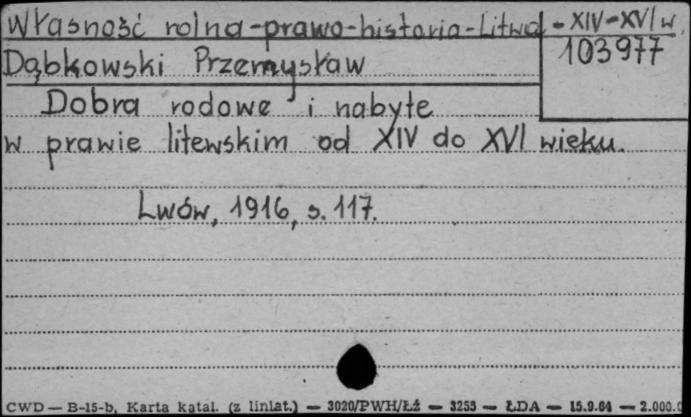 Własność rolna-prawo-historia-Litwa - XIV-XVI w.
103977
Dąbkowski Przemysław
Dobra rodowe i nabyte
w prawie litewskim od XIV do XVI wieku.
Lwów, 1916, s. 117.
CWD — B-15-b, Karta katal. (z liniat.) — 3020/PWH/ŁŹ — 3255 — ŁDA — 15.9.64 — 2.000.0